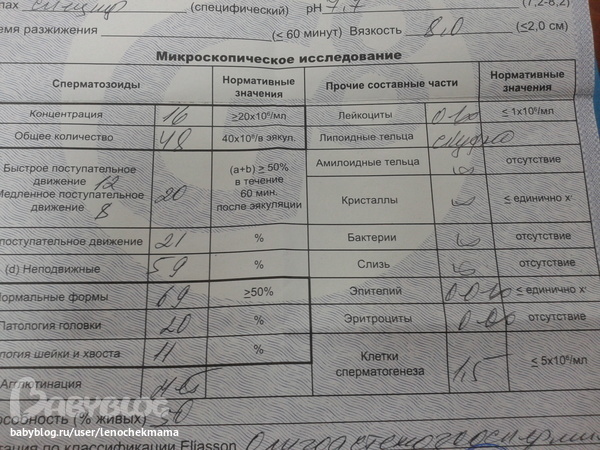 пах специф (специфический) pH 7,7 (7,2-8,2)
ремя разжижения (≤ 60 минут) Вязкость 8,0 (≤2,0 см)
Микроскопическое исследование
Сперматозоиды Нормативные значения Прочие составные части Нормативные значения
Концентрация 16 ≥20х10⁶/мл Лейкоциты ≤ 1х10⁶/мл
Общее количество 48 40х10⁶/в эякул. Липоидные тельца
Быстрое поступательное движение 12 Медленное поступательное движение 8 20 (a+b) ≥ 50% в течение 60 мин. после эякуляции Амилоидные тельца отсутствие
Кристаллы ≤ единично х
поступательное движение 21 % Бактерии отсутствие
(d) Неподвижные 59 % Слизь отсутствие
Нормальные формы 69 ≥50% Эпителий ≤ единично х
Патология головки 20 % Эритроциты отсутствие
логия шейки и хвоста 11 % Клетки сперматогенеза 1,5 ≤ 5х10⁶/мл
Агглютинация
Babyblog
особность (% живых) 50
babyblog.ru/user/lenochekmama
ация по классификации Eliasson